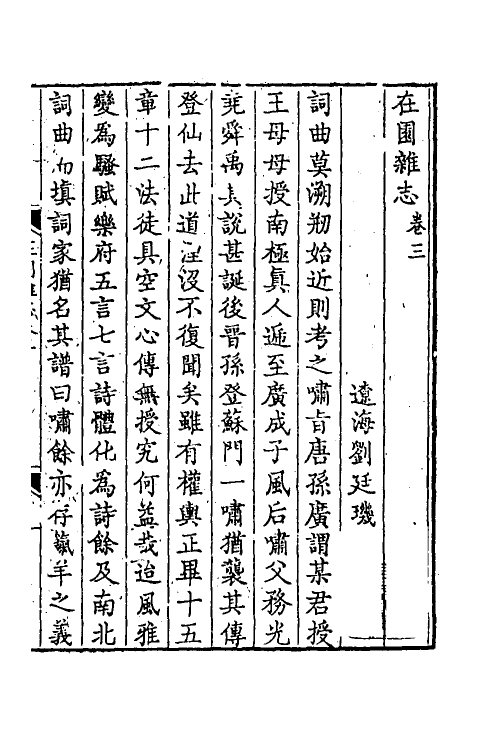 在園雜志 卷三
遼海劉廷璣
詞曲莫溯剏始近則考之嘯旨唐孫廣謂某君授
王母母授南極眞人遞至廣成子風后嘯父務光
堯舜禹其說甚誕後晉孫登蘇門一嘯猶襲其傳
登仙去此道湮沒不復聞矣雖有權輿正畢十五
章十二法徒具空文心傳無授究何益哉迨風雅
變爲騷賦樂府五言七言詩體化爲詩餘及南北
詞曲而塡詞家猶名其譜曰嘯餘亦存氣羊之義